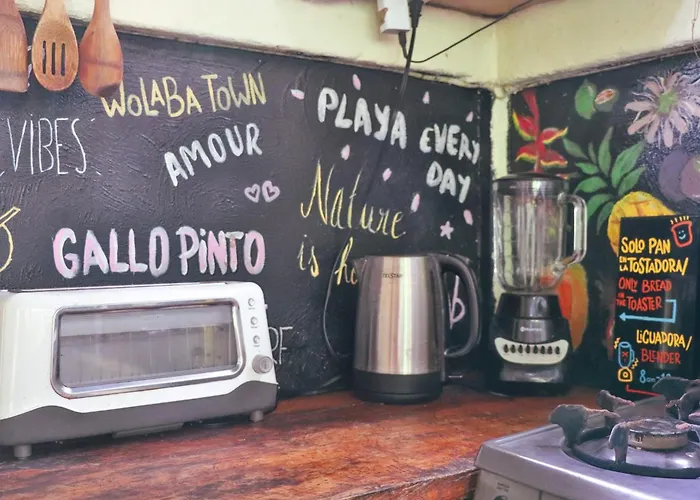 WOLABA TOWN
VIBES
AMOUR
GALLO PINTO
PLAYA EVERY
DAY
Nature
is
TELSTAR
SOLO PAN
EN
LA TOSTADORA/
ONLY BREAD
IN THE
TOASTER
LICUADORA/
BLENDER